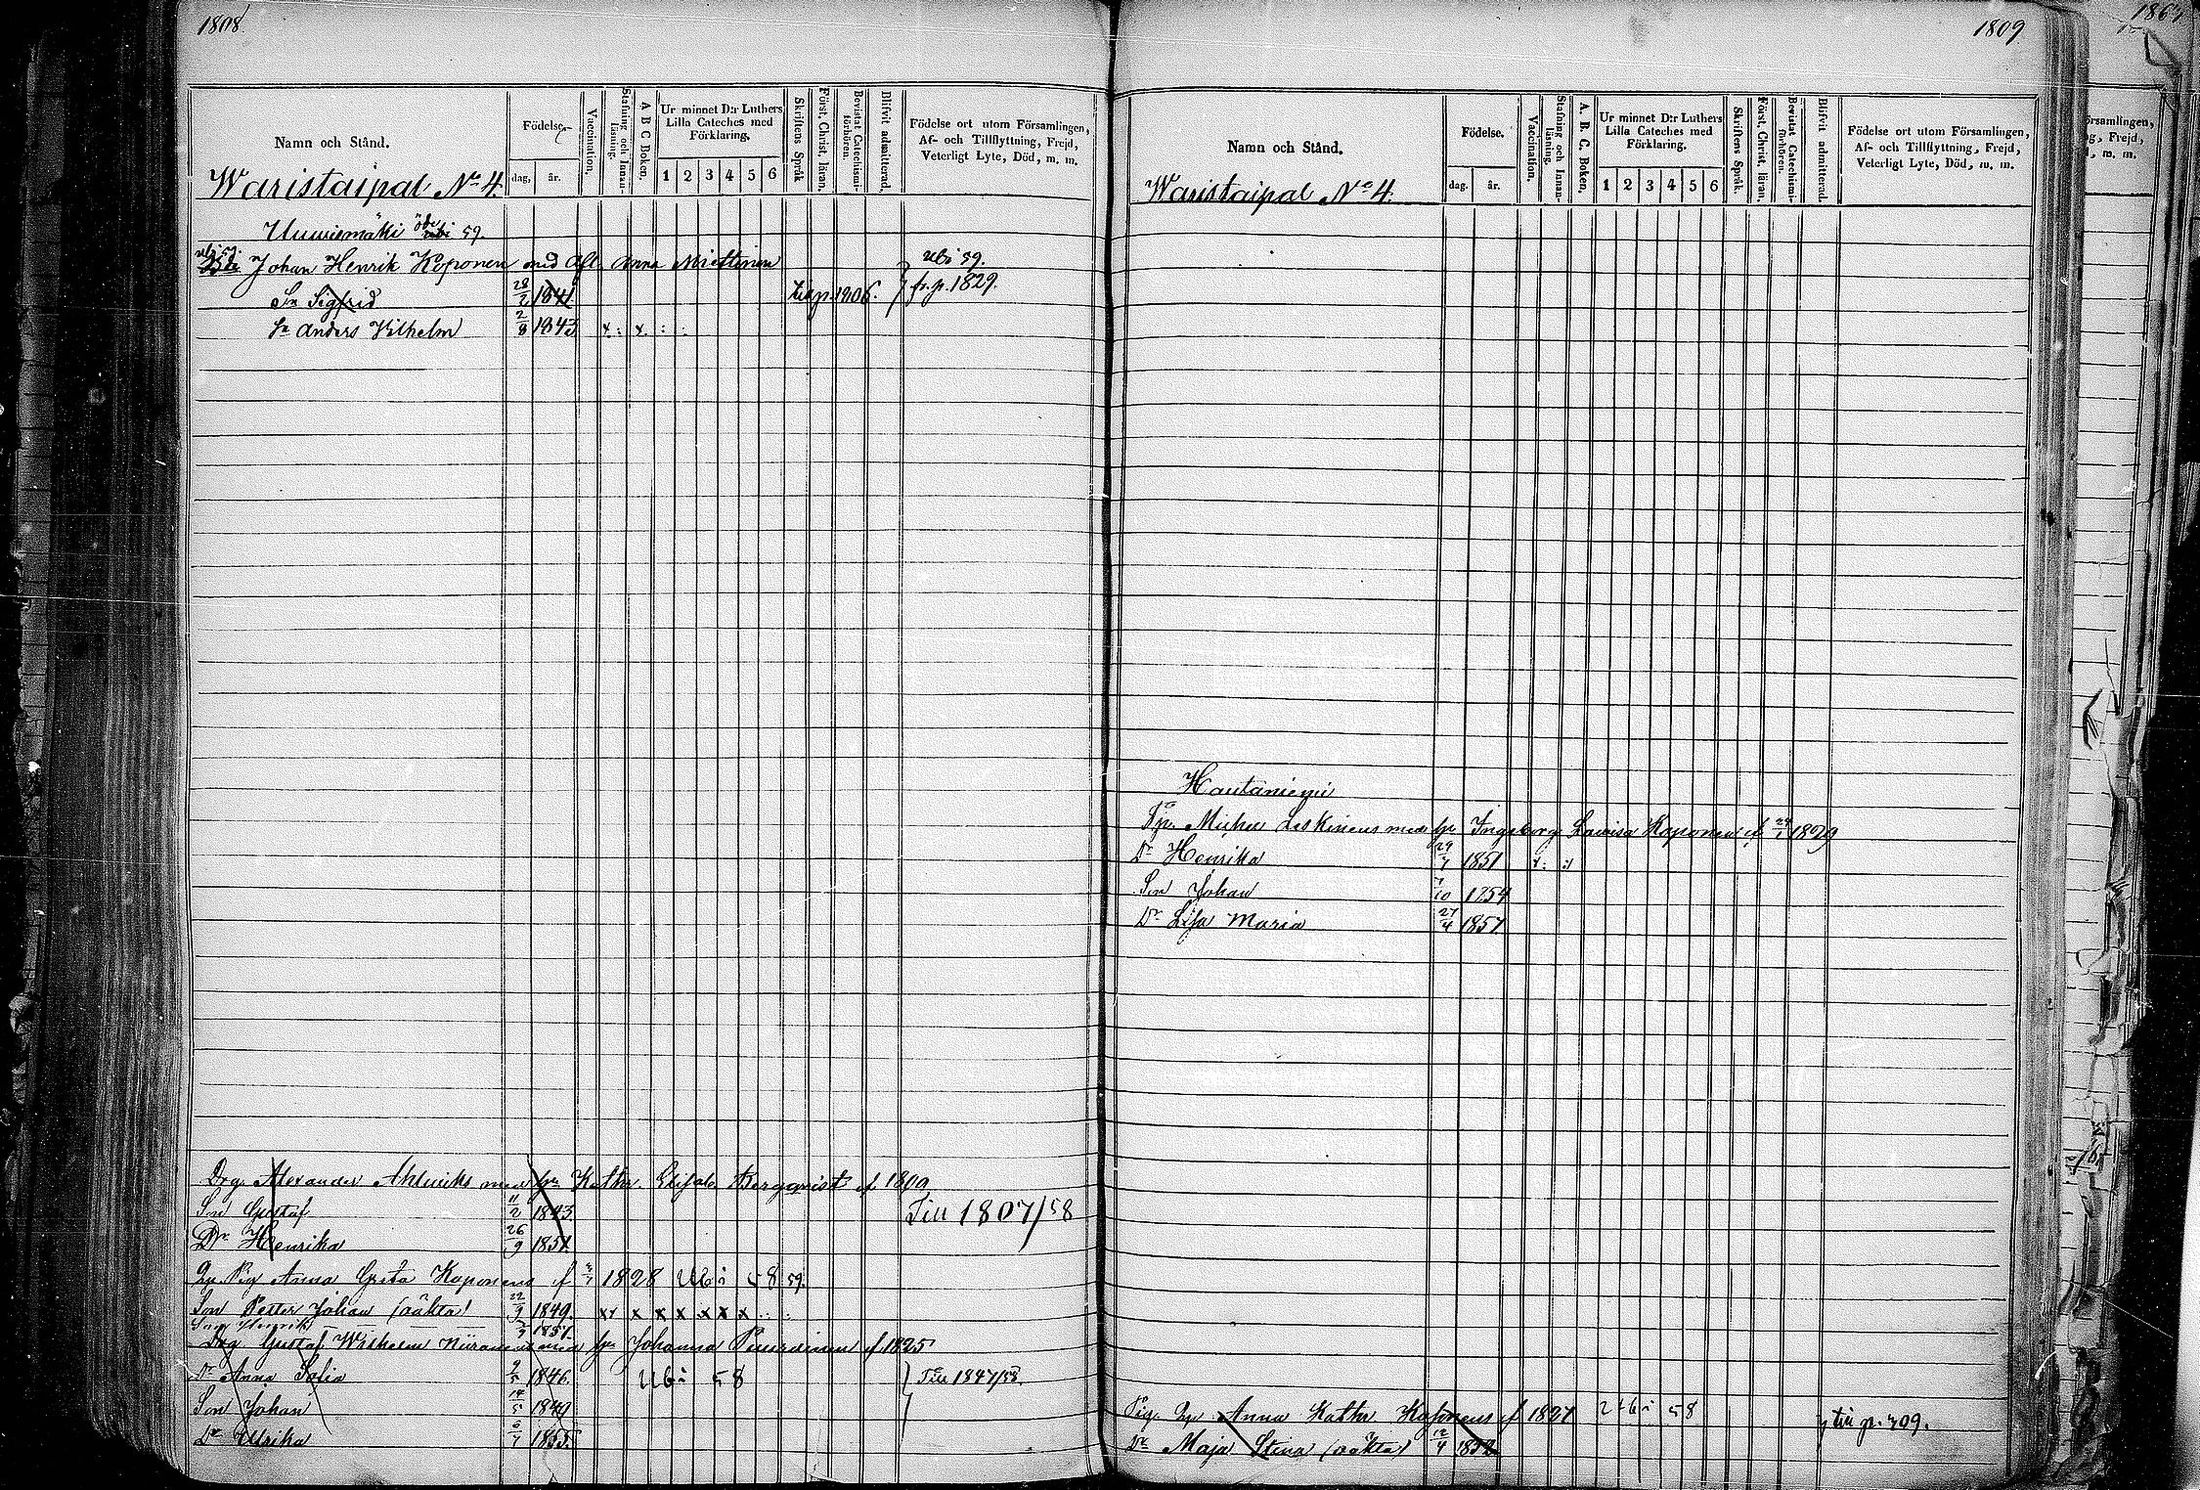 1808
Namn och Stånd.
Födelse.
dag,
år.
Vaccination.
Stafning och Innanläsning.
A B C Boken.
Ur minnet D:r Luthers Lilla Cateches med Förklaring.
1 2 3 4 5 6
Skriftens Språk
Först. Christ. läran.
Bevistat Catechismiförhören.
Blifvit admitterad.
Födelse ort utom Församlingen, Af- och Tillflyttning, Frejd, Veterligt Lyte, Död, m. m.
Waristaipal No 4.
Uuurismäki 59.
Johan Henrik Koponen med Anna Miettinen
Ubi 59.
Sn Sigfrid 28/2 1841 1206. fr. p. 1829.
Sn Anders Vilhelm 2/8 1843 x : x. : :
Drg. Alexander Ahlqviks med Kathr. Elisab. Bergqvist f. 1809
Son Gustaf 11/2 1843 Till 1807/58
Dr Henrika 26/9 1851
Pig Anna Greta Koponens f 1828 Ubi 58 59.
Son Petter Johan (oäkta) 22/9 1849. xx x x x x x x
Son Henrik 1857
Drg Gustaf Wilhelm Niiranen med hu Johanna f. 1825
Dr Anna Sofia 2/5 1846 Ubi 58 Till 1847/58.
Son Johan 14/5 1849
Dr Ulrika 6/7 1855
1809
Namn och Stånd.
Födelse.
dag.
år.
Vaccination.
Stafning och Innanläsning.
A. B. C. Boken,
Ur minnet D:r Luthers Lilla Cateches med Förklaring.
1 2 3 4 5 6
Skriftens Språk.
Först. Christ. läran.
Bevistat Catechismiförhören.
Blifvit admitterad.
Födelse ort utom Församlingen, Af- och Tillflyttning, Frejd, Veterligt Lyte, Död, m. m.
Waristaipal No 4.
Hautaniemi
Michel Leskinens med hu Ingeborg Lovisa Koponen f. 24/1 1829
Dr Henrika 29/7 1851 x: :
Son Johan 7/10 1854
Dr Lisa Maria 27/4 1857
Pig. Anna Kathr Koponens f 1827 Ubi 58 till p. 709.
Dr Maja Stina (oäkta) 12/4 1852